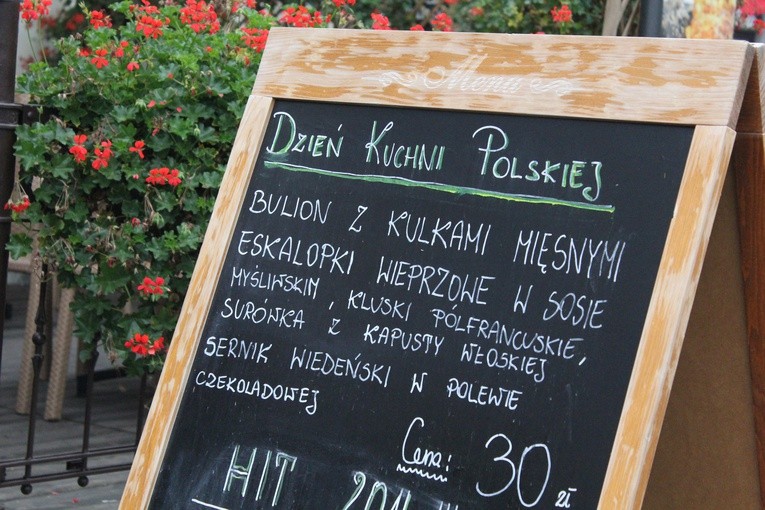 Menu
DZIEŃ KUCHNI POLSKIEJ
BULION Z KULKAMI MIĘSNYMI
ESKALOPKI WIEPRZOWE W SOSIE
MYŚLIWSKIM, KLUSKI PÓŁFRANCUSKIE,
SURÓWKA Z KAPUSTY WŁOSKIEJ
SERNIK WIEDEŃSKI W POLEWIE
CZEKOLADOWEJ
Cena: 30 zł
HIT